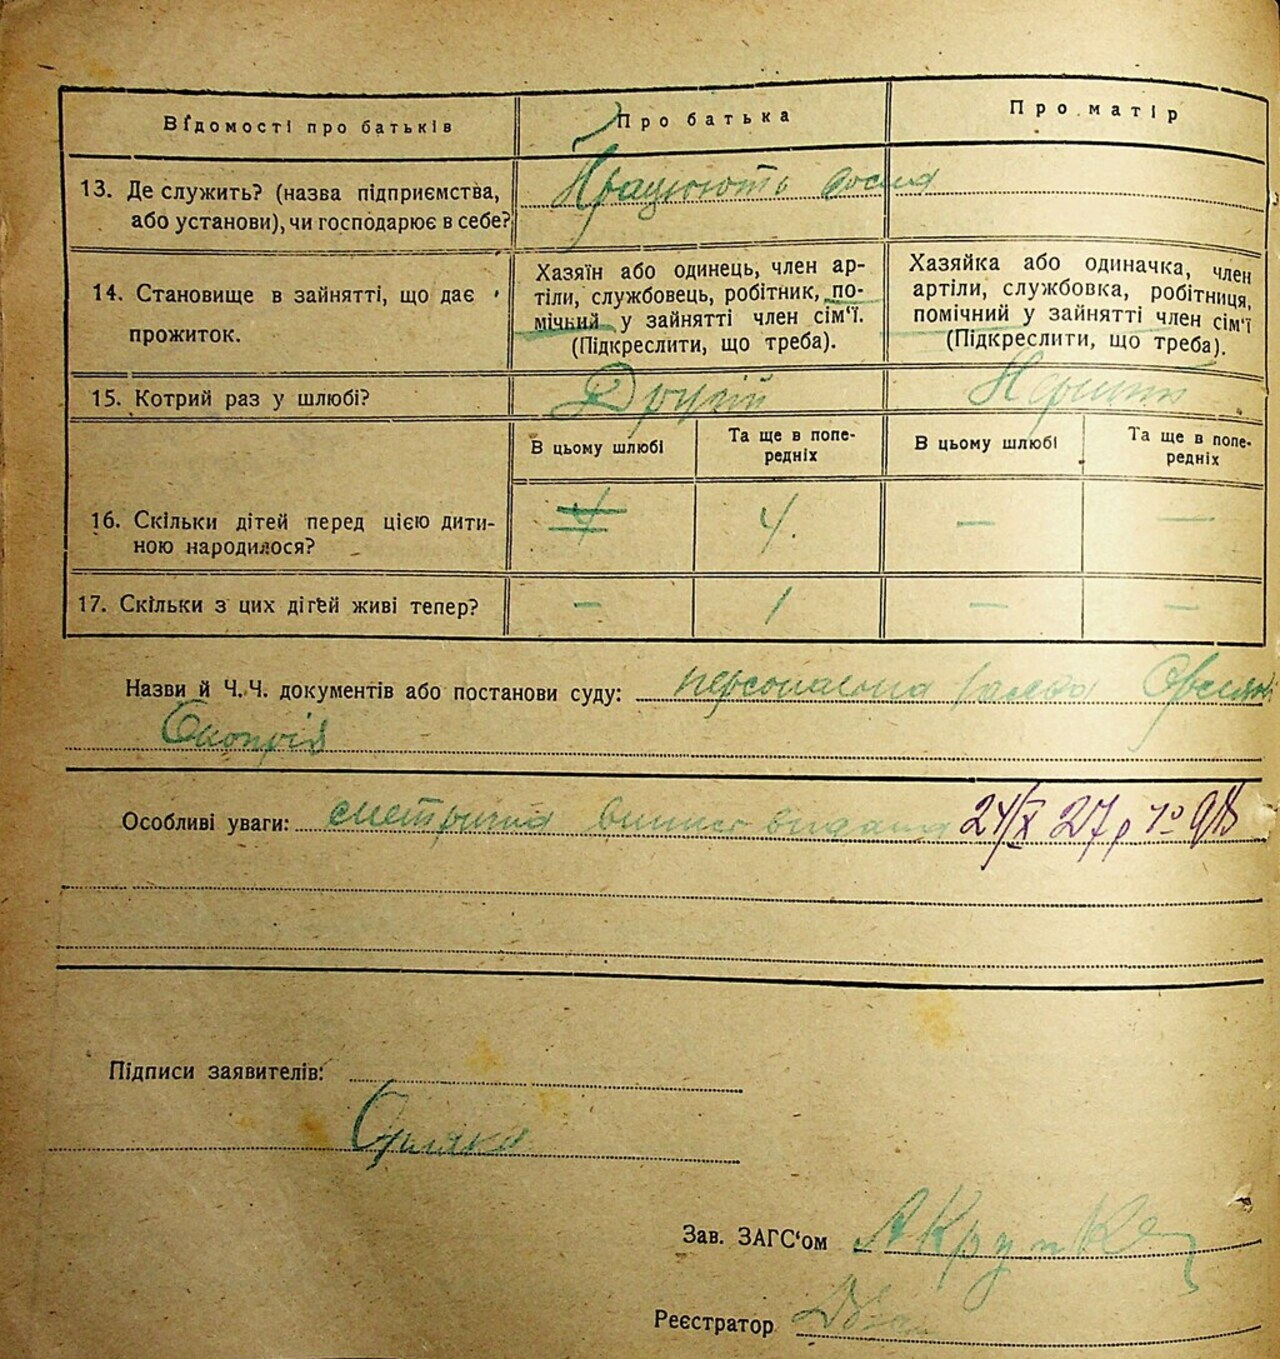 Відомості про батьків
Про батька
Про матір
13. Де служить? (назва підприємства,
або установи), чи господарює в себе?
Працюють дома
14. Становище в зайнятті, що дає
прожиток.
Хазяїн або одинець, член ар-
тіли, службовець, робітник, по-
мічний у зайнятті член сім'ї.
(Підкреслити, що треба).
Хазяйка або одиначка, член
артіли, службовка, робітниця,
помічний у зайнятті член сім'ї
(Підкреслити, що треба).
15. Котрий раз у шлюбі?
Другий
В цьому шлюбі
Та ще в попе-
редніх
В цьому шлюбі
Та ще в попе-
редніх
16. Скільки дітей перед цією дити-
ною народилося?
4
4.
—
—
17. Скільки з цих дітей живі тепер?
—
1
—
—
Назви й Ч.Ч. документів або постанови суду: персональна заява
Особливі уваги: видана 24/X 27 р
Підписи заявителів:
Зав. ЗАГС'ом
Реєстратор